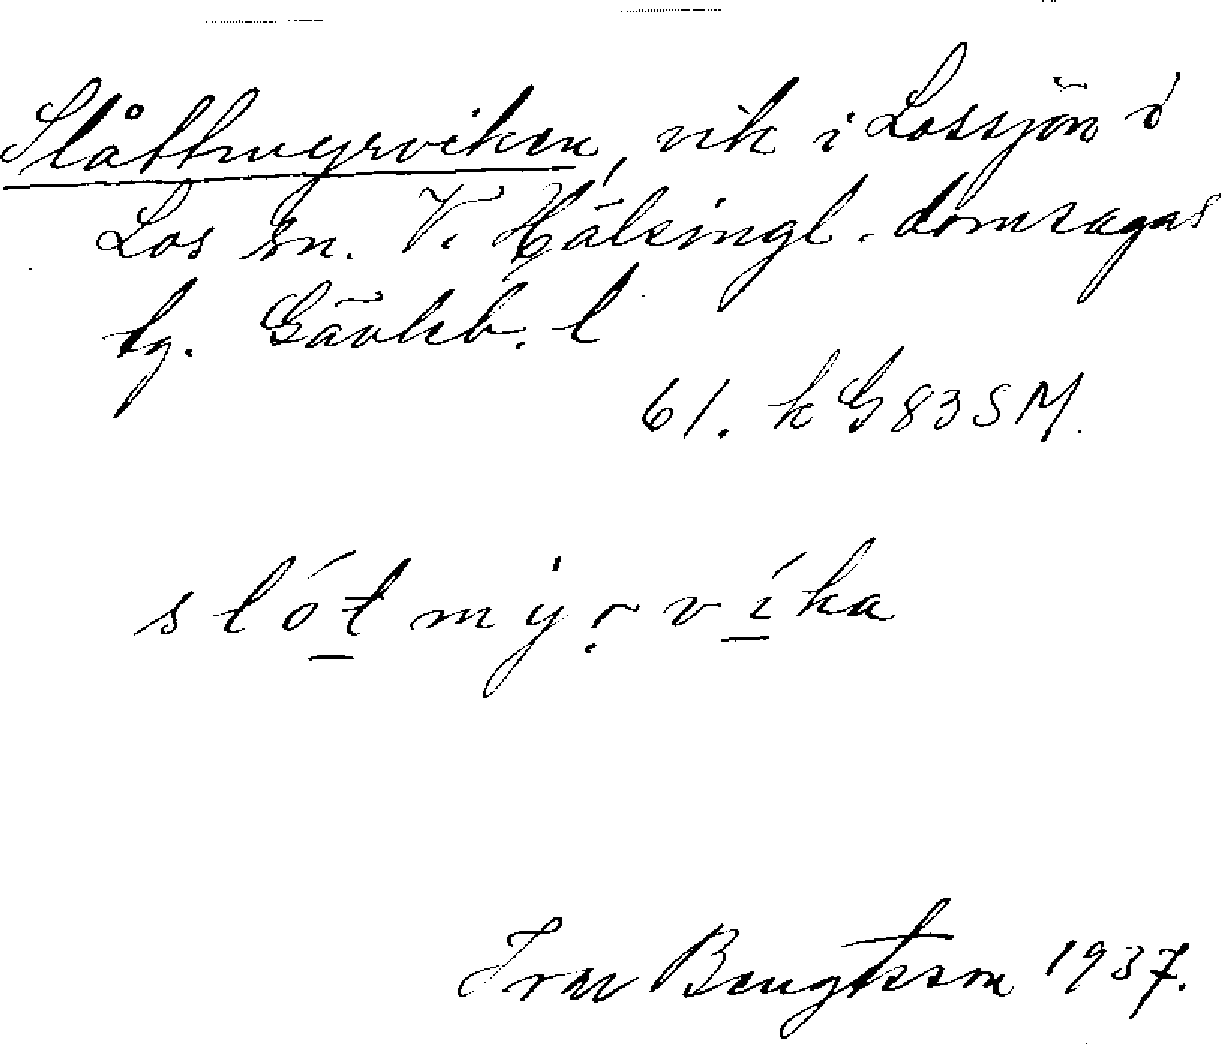 Slåttmyrviken, vik i Lossjön i
Los sn. V. Hälsingl. domsagas
tg. Gävleb. l
61. k G 83 S M.
slótmýṛvíka
Ivar Bengtsson 1937.